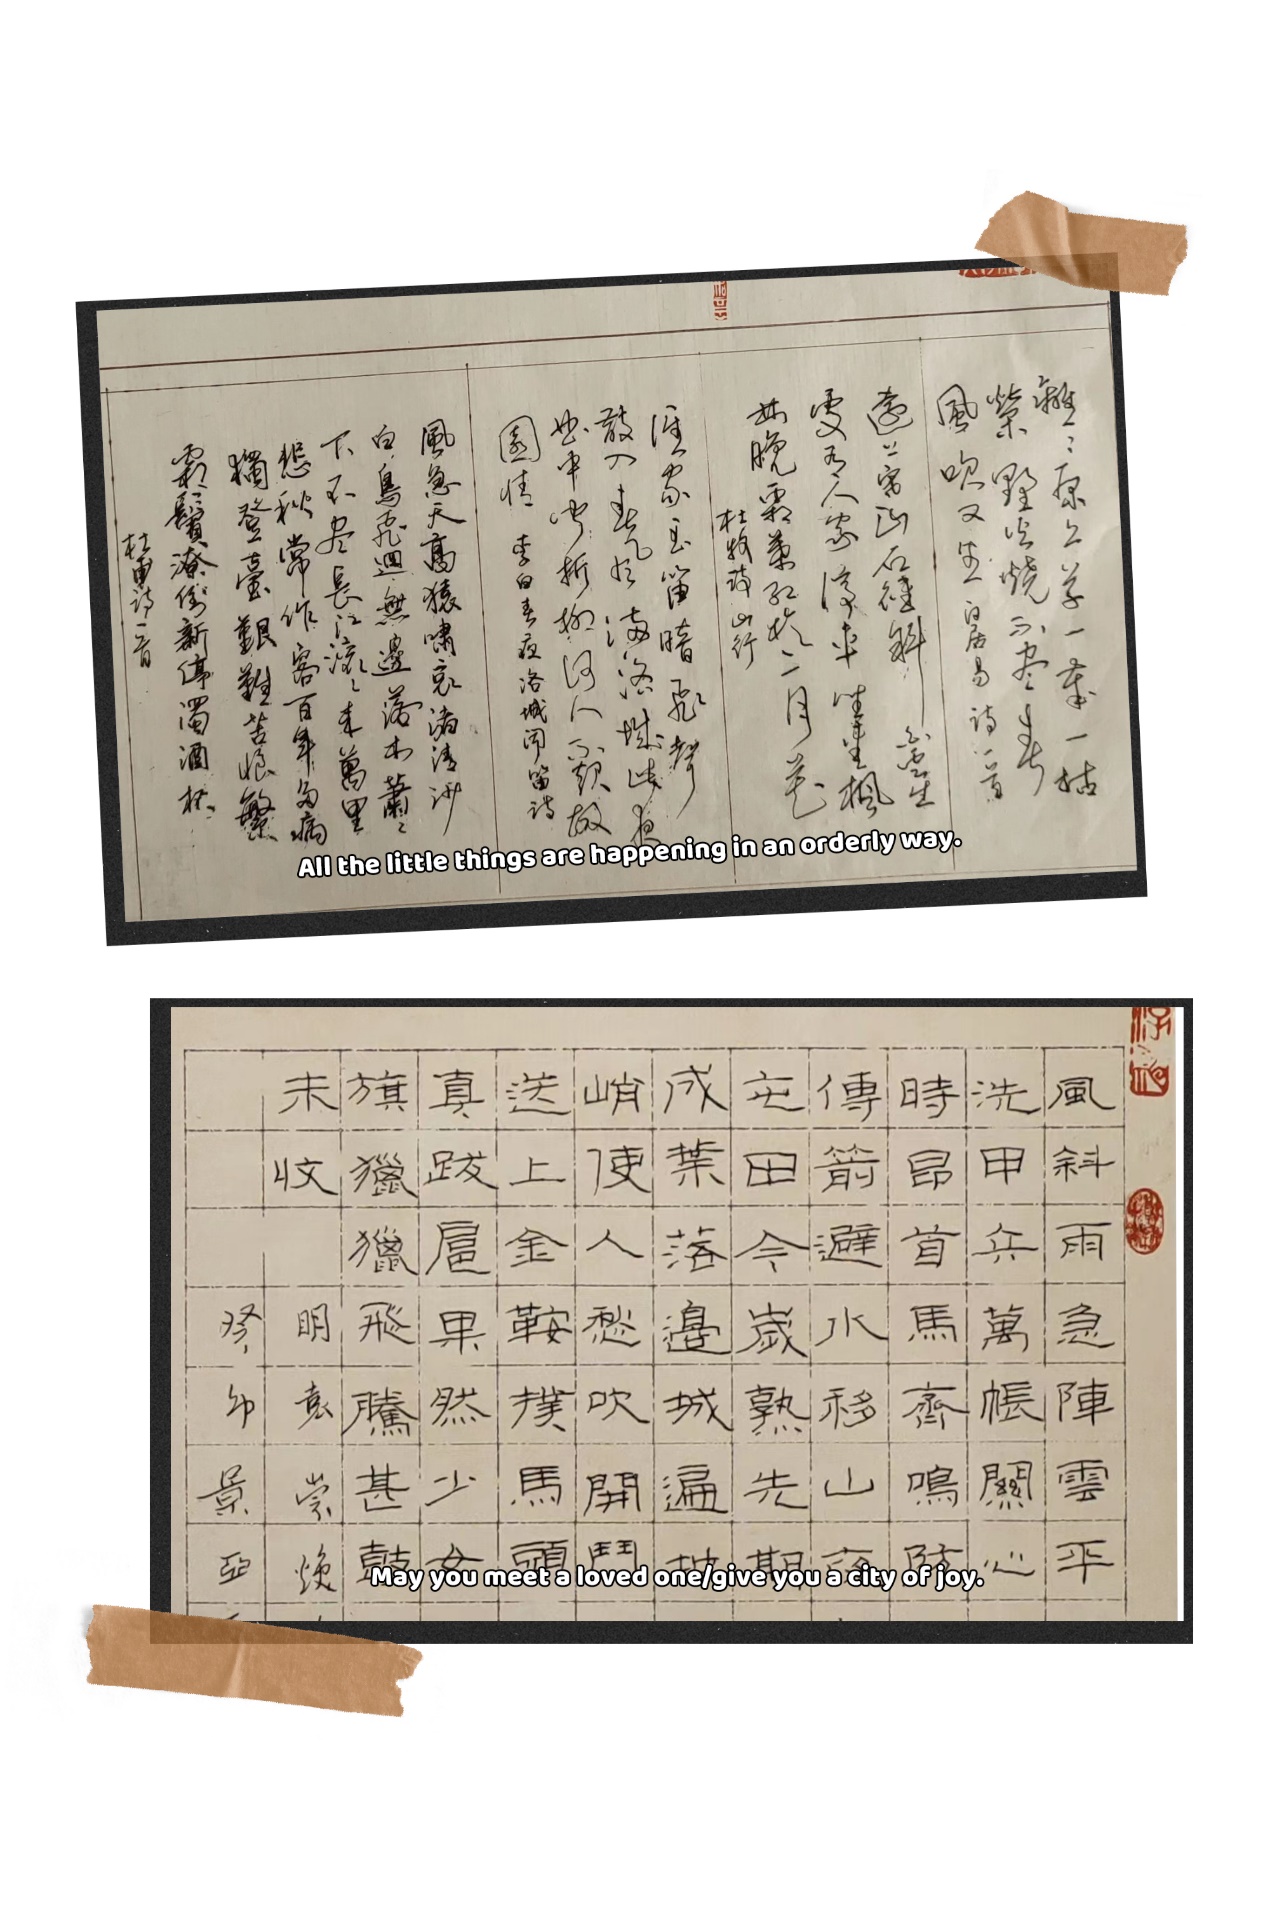 離〻原上草一歲一枯
榮野火燒不尽春
風吹又生 白居易詩一首
遠上寒山石徑斜 白雲生
處有人家停車坐愛楓
林晚霜葉紅於二月花
杜牧詩山行
誰家玉笛暗飛聲
散入春風滿洛城此夜
曲中聞折柳何人不起故
園情 李白春夜洛城聞笛詩
風急天高猿嘯哀渚清沙
白鳥飛迴無邊落木蕭〻
下不尽長江滾〻來萬里
悲秋常作客百年多病
獨登臺艱難苦恨繁
霜鬢潦倒新停濁酒杯
杜甫詩一首
All the little things are happening in an orderly way.
風斜雨急陣雲平
洗甲兵萬帳關心
時昂首馬齊鳴防
傳箭避水移山
屯田今歲熟先期
成葉落邊城遍地
峭使人愁吹開鬥
送上金鞍撲馬頭
真跋扈果然少女
旗獵獵飛騰甚鼓
未收 明袁崇煥
癸卯景亞
May you meet a loved one/give you a city of joy.